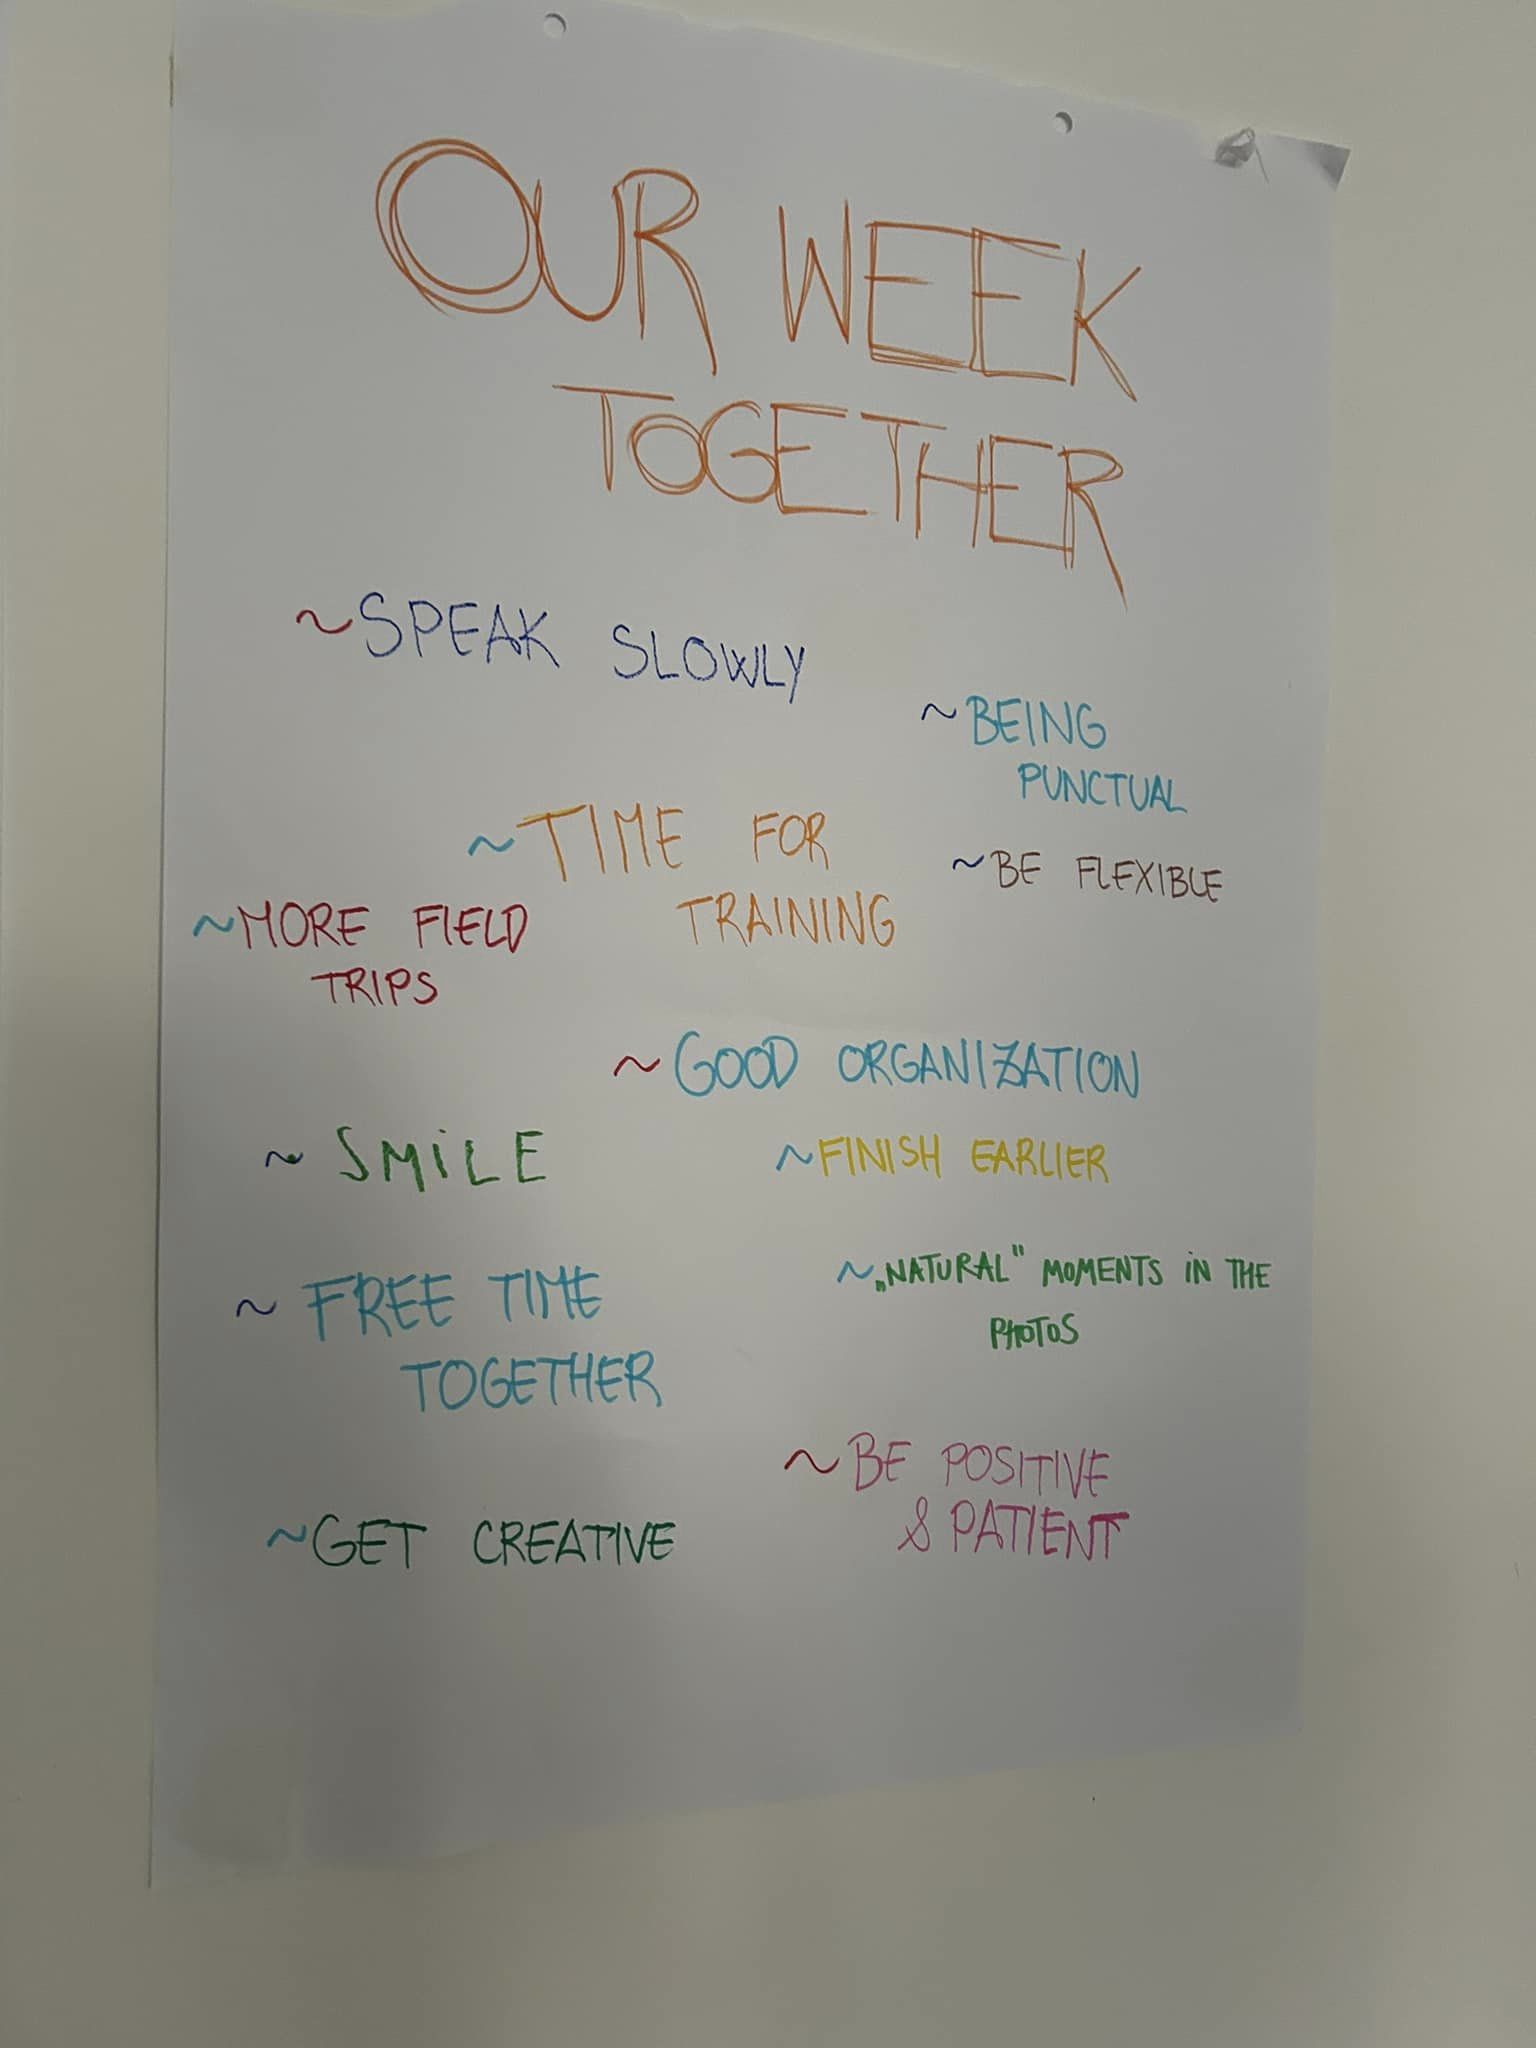 OUR WEEK
TOGETHER
~SPEAK SLOWLY
~BEING
PUNCTUAL
~TIME FOR
TRAINING
~BE FLEXIBLE
~MORE FIELD
TRIPS
~GOOD ORGANIZATION
~SMiLE
~FINISH EARLIER
~FREE TIME
TOGETHER
~„NATURAL" MOMENTS iN THE
PHOTOS
~BE POSITIVE
& PATIENT
~GET CREATIVE